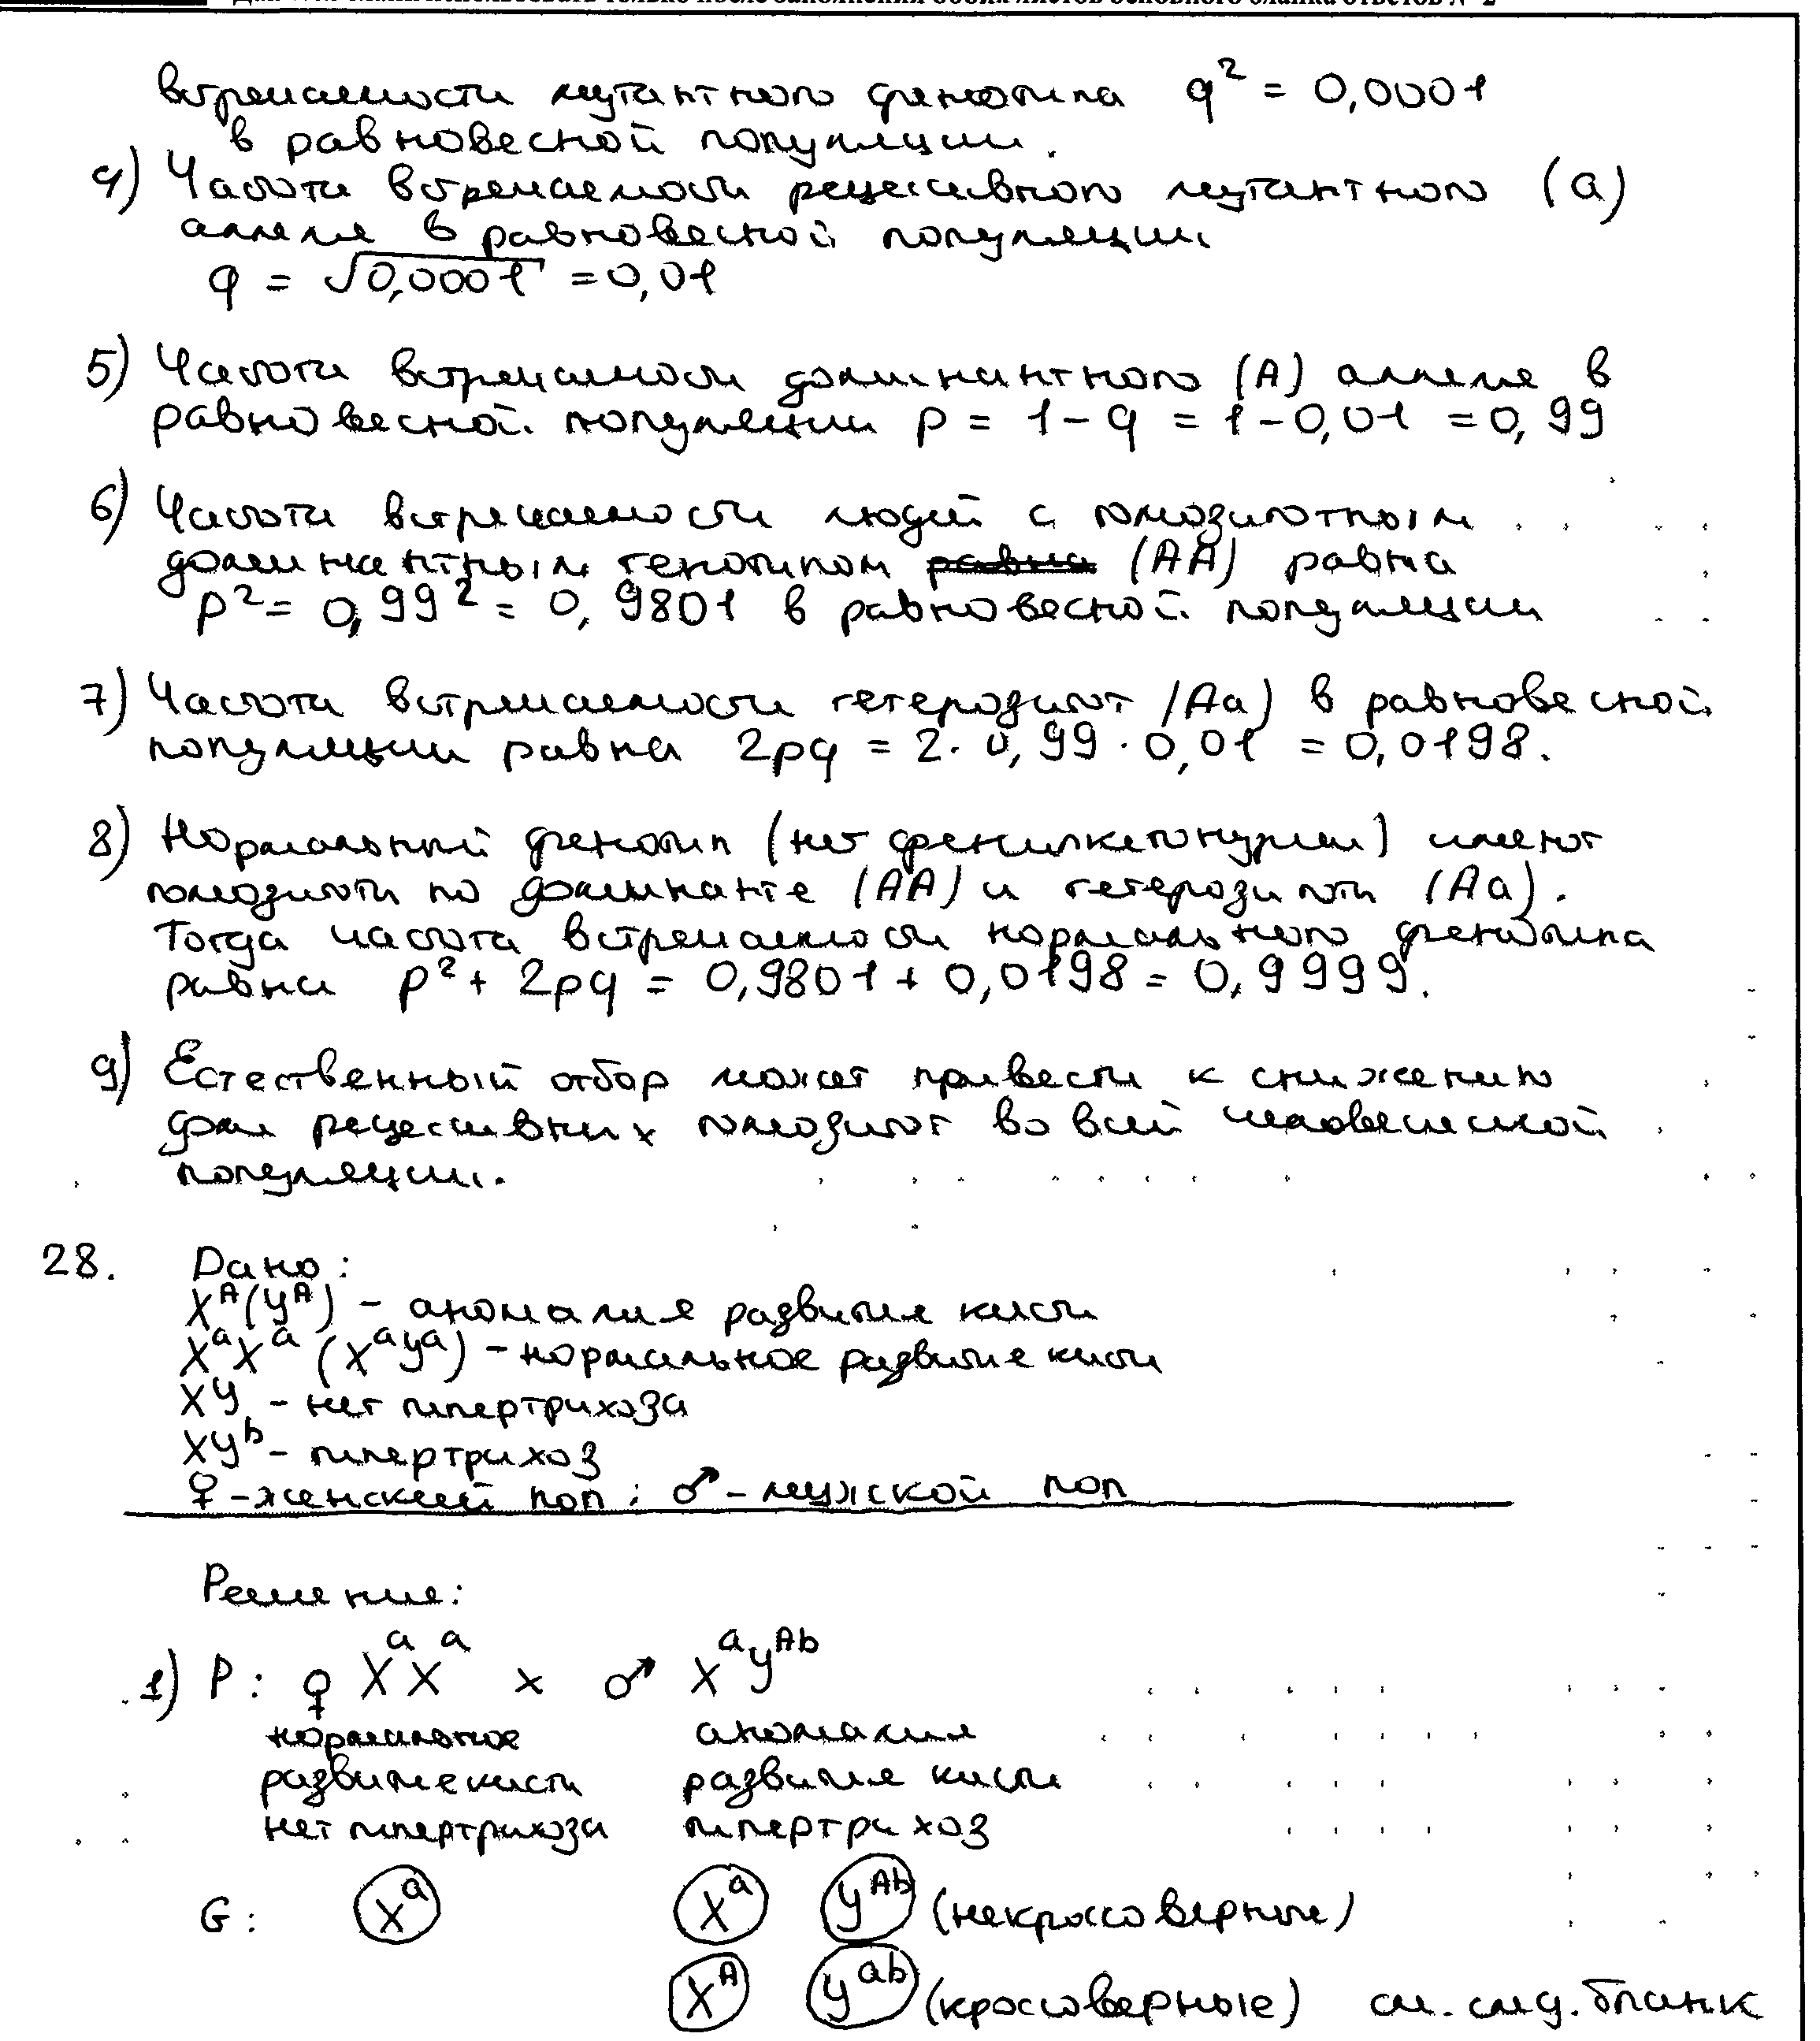 встречаемости мутантного фенотипа q² = 0,0001
в равновесной популяции.
4) Частота встречаемости рецессивного мутантного (a)
аллеля в равновесной популяции
q = √0,0001 = 0,01
5) Частота встречаемости доминантного (A) аллеля в
равновесной популяции p = 1 - q = 1 - 0,01 = 0,99
6) Частота встречаемости людей с гомозиготным
доминантным генотипом равна (AA) равна
p² = 0,99² = 0,9801 в равновесной популяции
7) Частота встречаемости гетерозигот (Aa) в равновесной
популяции равна 2pq = 2 · 0,99 · 0,01 = 0,0198.
8) Нормальный фенотип (нет фенилкетонурии) имеют
гомозиготы по доминанте (AA) и гетерозиготы (Aa).
Тогда частота встречаемости нормального фенотипа
равна p² + 2pq = 0,9801 + 0,0198 = 0,9999.
9) Естественный отбор может привести к снижению
доли рецессивных гомозигот во всей человеческой
популяции.
28. Дано:
Xᴬ(Yᴬ) - аномалия развития кисти
XᵃXᵃ (XᵃYᵃ) - нормальное развитие кисти
XY - нет гипертрихоза
XYᵇ - гипертрихоз
♀ - женский пол; ♂ - мужской пол
Решение:
1) P: ♀ XᵃXᵃ x ♂ XᵃYᴬᵇ
нормальное аномалия
развитие кисти развития кисти
нет гипертрихоза гипертрихоз
G: Xᵃ Xᵃ Yᴬᵇ (некроссоверные)
Xᴬ Yᵃᵇ (кроссоверные) см. след. бланк